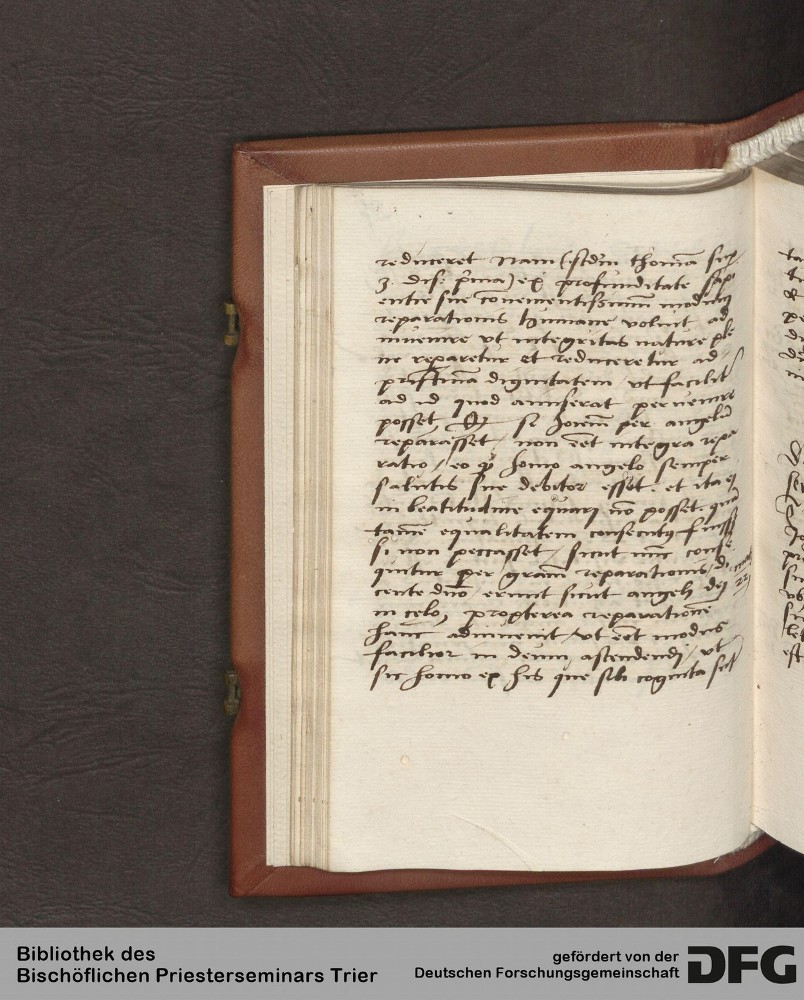 reduceret Nam (scdm thomā sup
3. dis: p̄ma) ex profunditate sapi
entie sue conuenientissimum modum
reparationis humane voluit ad
inuenire vt integritas nature ple
ne repararetur et reduceretur ad
pristinā dignitatem vt facilit
ad id quod amiserat peruenire
posset, si hoīem per angelū
reparasset, non eēt integra repa
ratio, eo ꝙ homo angelo semper
salutis sue debitor esset. et ita ei
in beatitudine equari nō posset.
tamē equalitatem fuiss
si non peccasset, sicut nūc conse
quitur per gratiā reparationis, di
cente dnō, erunt sicut angeli dei
in celo, propterea reparationē
hanc adinuenit, vt eēt modus
facilior in deum ascendendi, vt
sic homo ex his que sibi cognita sūt
Bibliothek des
Bischöflichen Priesterseminars Trier
gefördert von der
Deutschen Forschungsgemeinschaft
DFG